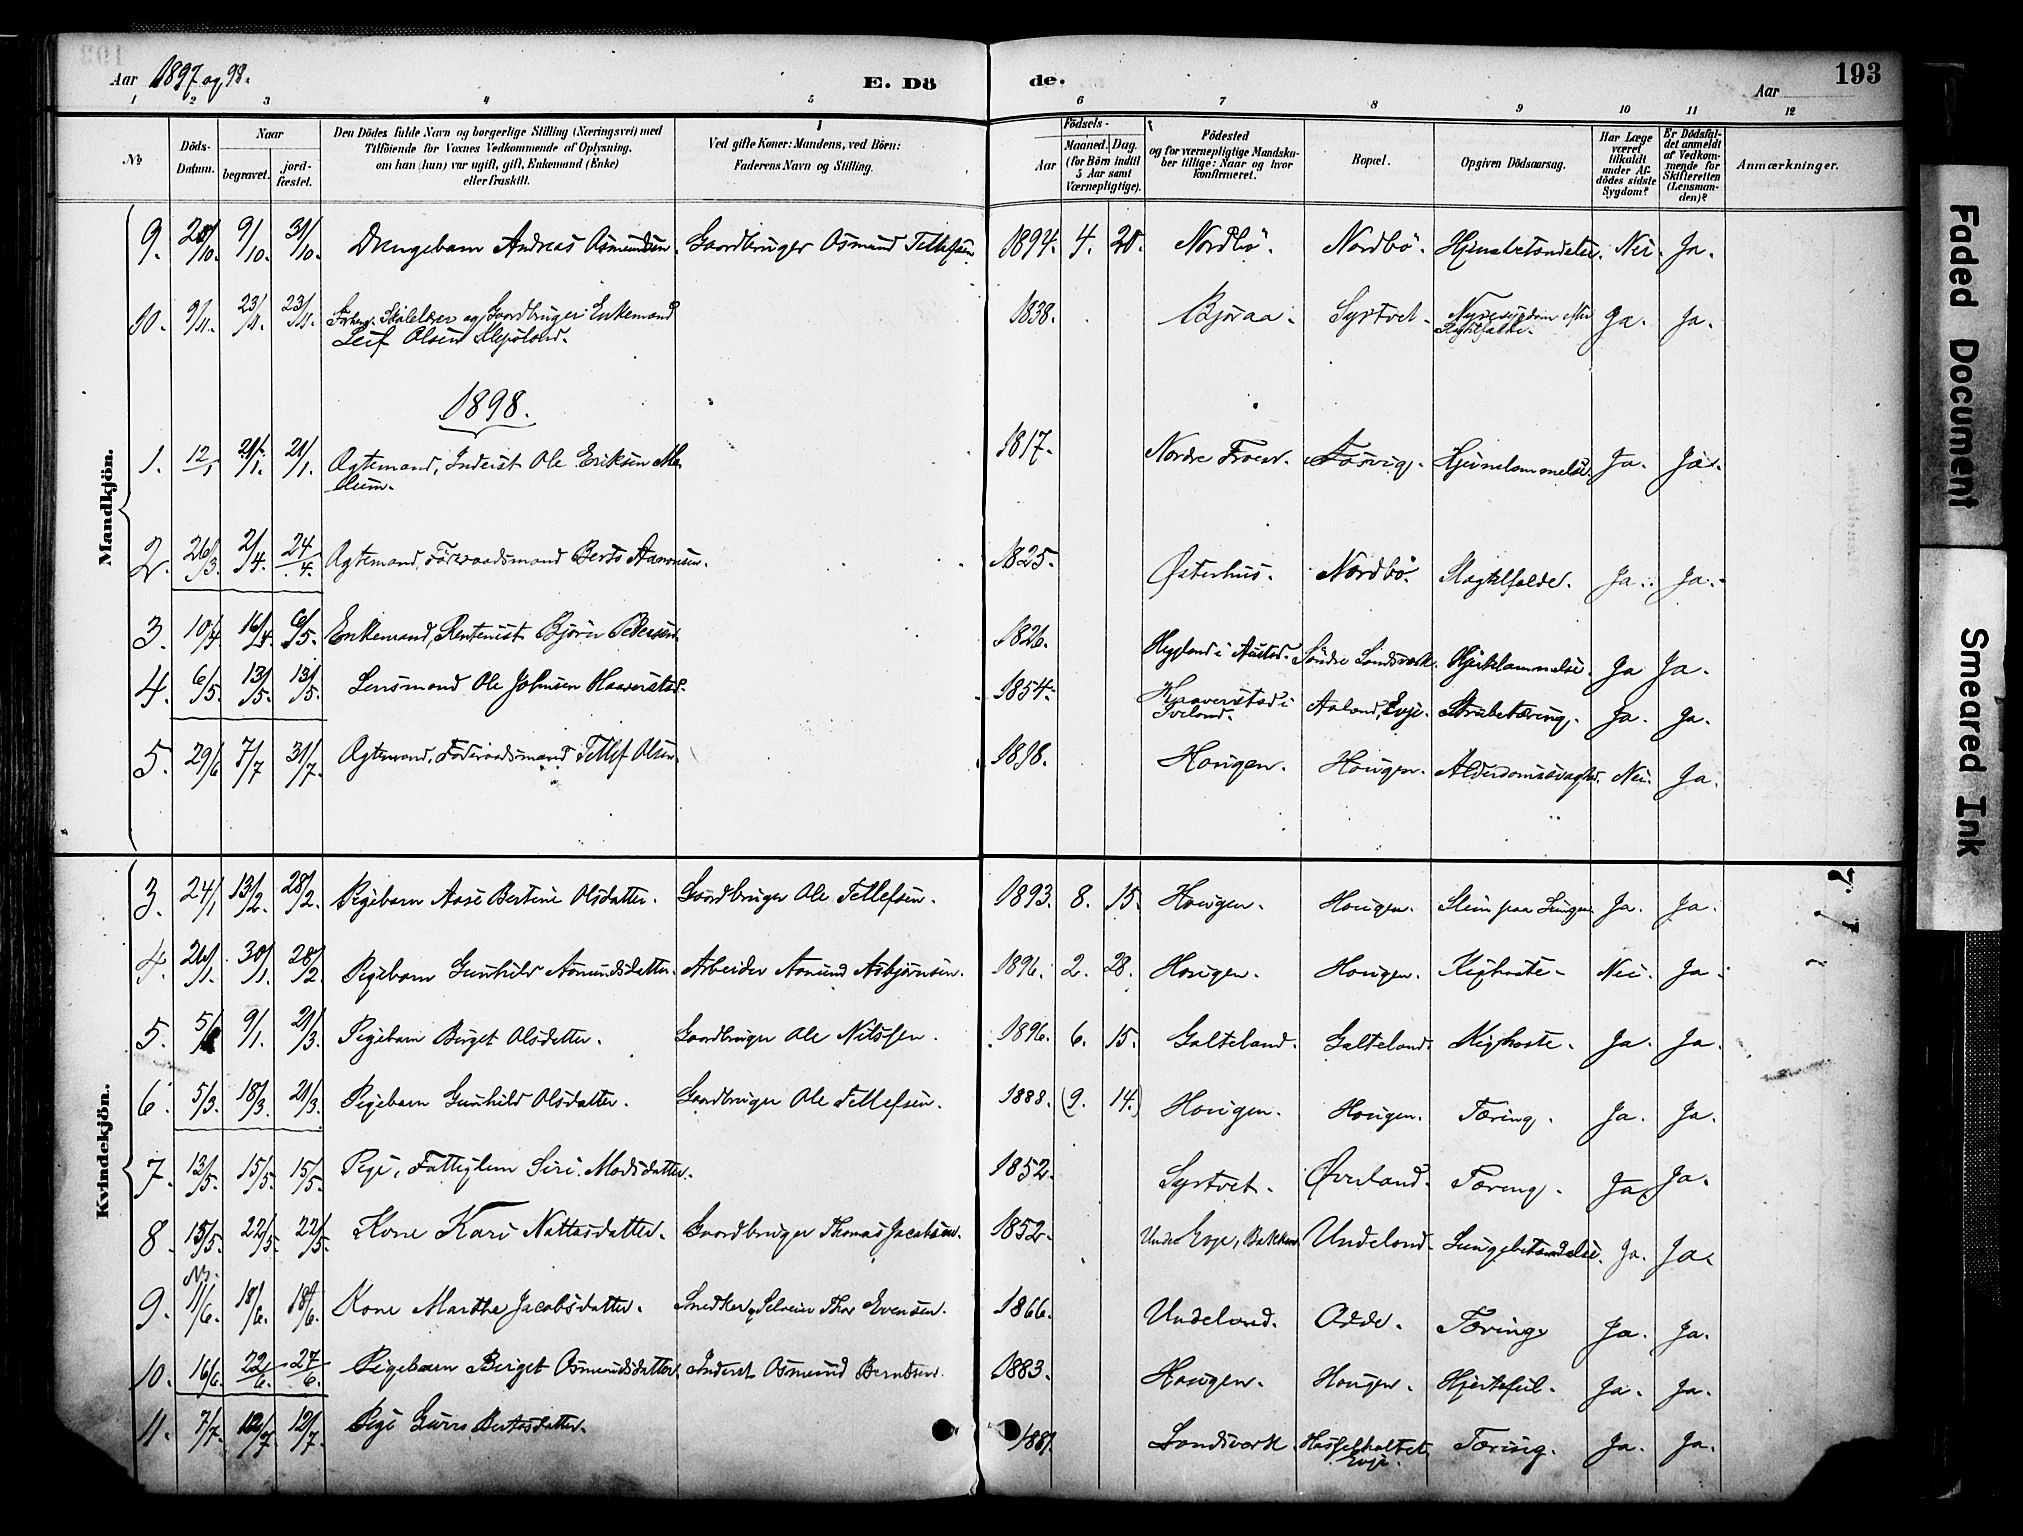 Aar 1897 og 98. E. Dö de. Aar 193
1 2 3 4 5 6 7 8 9 10 11 12
No
Döds-Datum.
Naar
begravet.
jord-fæstet.
Den Dödes fulde Navn og borgerlige Stilling (Næringsvei) med
Tilföiende for Voxnes Vedkommende af Oplysning,
om han (hun) var ugift, gift, Enkemand (Enke)
eller fraskilt.
Ved gifte Koner: Mandens, ved Börn:
Faderens Navn og Stilling.
Födsels-
Aar
Maaned. Dag.
(for Börn indtil
5 Aar samt
Værnepligtige).
Födested
og for værnepligtige Mandska-
ber tillige: Naar og hvor
konfirmeret.
Bopæl.
Opgiven Dödsaarsag.
Har Læge
været
tilkaldt
under Af-
dödes sidste
Sygdom?
Er Dödsfal-
det anmeldt
af Vedkom-
mende for
Skifteretten
(Lensman-
den)?
Anmærkninger.
Mandkjön.
9. 9/10. 31/10. Drengebarn Andreas Osmundsen. Gaardbruger Osmund Tellefsen 1894. 4. 20. Nordbö. Nordbö. Hjernebetændelse. Nei. Ja.
10. 9/11. 23/11. 23/11. Forheng. Skolelærer og Gaardbruger. Enkemand 1838. Bjoraa. Syrtvet. Nyresygdom efter Ja. Ja.
Leif Olsen
1898.
1. 12/1 21/1. 21/1. Ægtemand, Inderst Ole Eriksen 1817. Nordre Hjernelammelse. Ja. Ja.
2. 26/3. 2/4. 24/4. Ægtemand, Föderaadsmand Bento Aanonsen. 1825. Østerhus. Nordbö. Slagtilfælde. Ja. Ja.
3. 10/4 16/4. 6/5. Enkemand, Rentenist Björn Pedersen. 1826. Hegland i Austad. Söndre Landsverk. Hjertelammelse. Ja Ja.
4. 6/5. 13/5. 13/5. Lensmand Ole Johnsen Haaverstad. 1854. Haaverstad i
Iveland. Aaland, Evje. Strubetæring. Ja. Ja.
5. 29/6 7/7 31/7. Ægtemand, Föderaadsmand Tellef Olsen. 1818. Hougen. Hougen. Alderdomssvaghed. Nei. Ja.
Kvindekjön.
3. 24/1 13/2. 28/2. Pigebarn Aase Bertine Olsdatter. Gaardbruger Ole Tellefsen. 1893. 8. 15. Hougen. Hougen. Slim paa Lungen. Ja. Ja.
4. 26/1. 30/1. 28/2 Pigebarn Gunhild Asmundsdatter. Arbeider Asmund Asbjörnsen. 1896. 2. 28. Hougen. Hougen. Kighoste. Nei. Ja.
5. 9/1. 21/3. Pigebarn Birget Olsdatter. Gaardbruger Ole Nilssen. 1896. 6. 15. Galteland. Galteland. Kighoste. Ja. Ja.
6. 5/3. 18/3. 21/3. Pigebarn Gunhild Olsdatter. Gaardbruger Ole Tellefsen. 1888. (9. 14.) Hougen. Hougen. Tæring. Ja. Ja.
7. 13/5. 15/5. 15/5. Pige, Fattiglem Siri Madsdatter. 1852. Syrtvet. Øverland. Tæring. Ja Ja.
8. 15/5. 22/5. 22/5. Kone Kari Nattasdatter. Gaardbruger Thomas Jacobsen. 1852. Under Evje, Bakken Undeland. Lungebetændelse. Ja. Ja.
9. 11/6. 18/6. 18/6. Kone Marthe Jacobsdatter. Snedker, Selveier Thor Evensen. 1866. Undeland. Odde. Tæring Ja. Ja.
10. 16/6. 22/6. 27/6. Pigebarn Birget Osmundsdatter. Inderst Osmund Berntsen. 1883. Hougen. Hougen. Hjertefeil. Ja. Ja.
11. 7/7. 12/7 12/7. Pige Gurro Bentosdatter. 1881. Landsverk. Hasselholtet
Evje. Tæring. Ja. Ja.
Faded Document
Smeared Ink